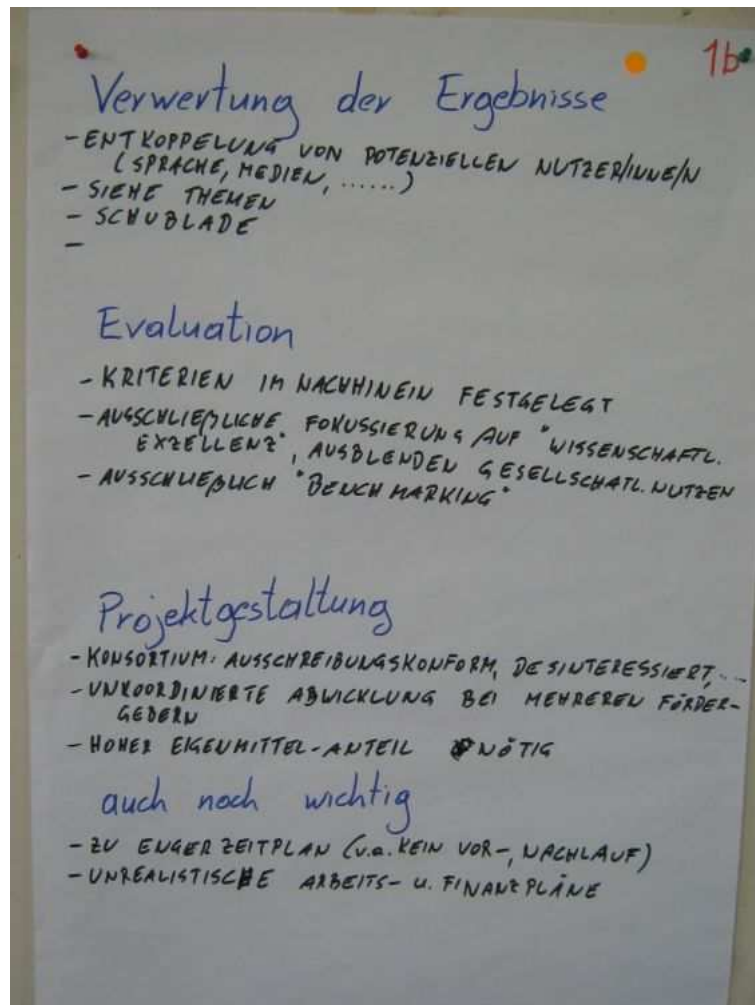 1b
Verwertung der Ergebnisse
- ENTKOPPELUNG VON POTENZIELLEN NUTZER/INNE/N
(SPRACHE, MEDIEN, ......)
- SIEHE THEMEN
- SCHUBLADE
-
Evaluation
- KRITERIEN IM NACHHINEIN FESTGELEGT
- AUSSCHLIEßLICHE FOKUSSIERUNG AUF "WISSENSCHAFTL.
EXZELLENZ", AUSBLENDEN GESELLSCHATL. NUTZEN
- AUSSCHLIEßLICH "BENCHMARKING"
Projektgestaltung
- KONSORTIUM: AUSSCHREIBUNGSKONFORM, DESINTERESSIERT,...
- UNKOORDINIERTE ABWICKLUNG BEI MEHREREN FÖRDER-
GEBERN
- HOHER EIGENMITTEL-ANTEIL NÖTIG
auch noch wichtig
- ZU ENGER ZEITPLAN (v.a. KEIN VOR-, NACHLAUF)
- UNREALISTISCHE ARBEITS- U. FINANZPLÄNE